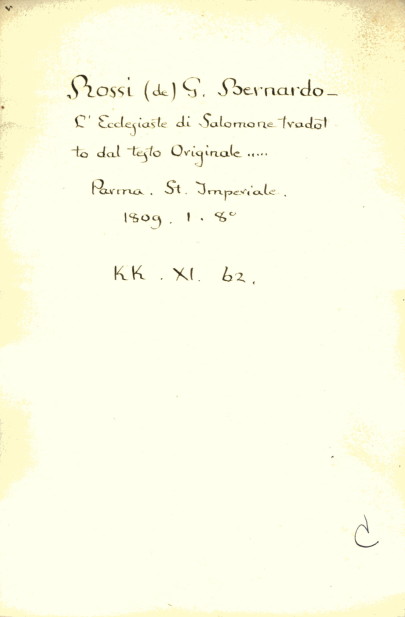 Rossi (de) G. Bernardo -
L' Ecclesiaste di Salomone tradot
to dal testo Originale .....
Parma . St. Imperiale .
1809 . 1 . 8°
KK . XI . 62 .